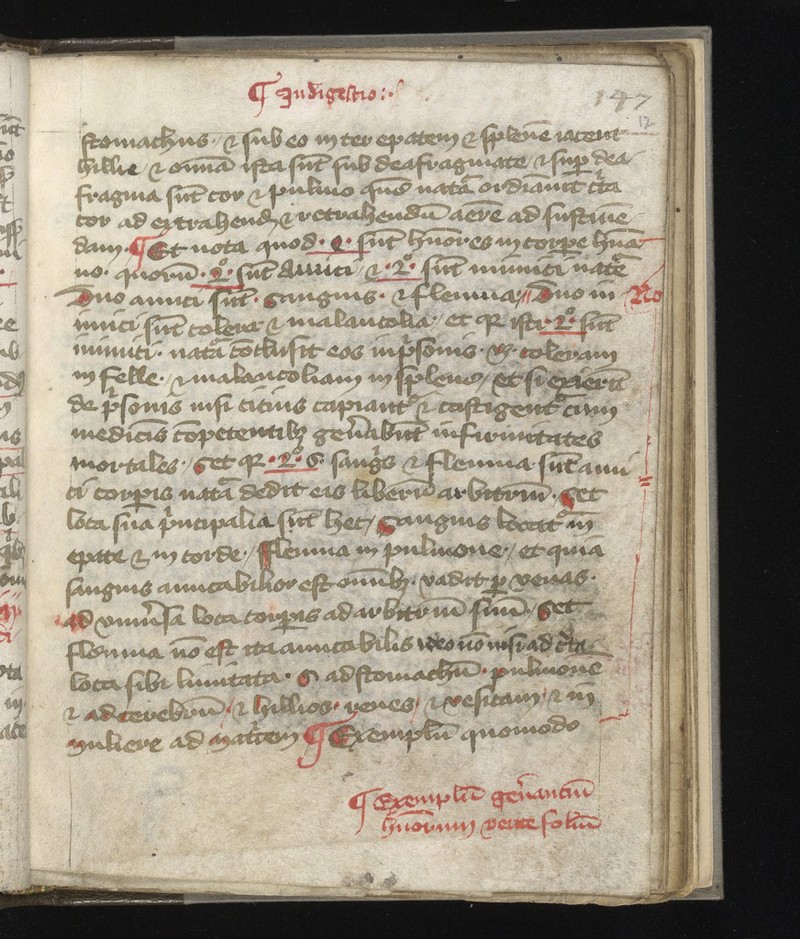 ¶ Indigestio
147
12
stomachus · & sub eo inter epatem & splenē iacent
hillie · & omīa ista sūt sub deafragmate · & sup dea-
fragma sūt cor & pulmo quos natā ordīauit cīta
cor ad extrahend & retrahendū aerē ad sustine-
dam · ¶ Et nota quod · 4 · sūt hūores in corpe hūa-
no · quorū · 2º · sūt amici · & · 2º · sūt inimici natē
Duo amici sūt · sanguis · & flenma // Duo in
No
imici sūt colera & malancolia · et qr isti · 2º · sūt
inimici · natā cōclusit eos in prisonis · s · coleram
in felle · & malancoliam in splene / et si exierīt
de prisonis nisi citius capiantr & castigentr cum
medicīs cōpetentibz genābūt infirmitates
mortales / Set qr · 2º · s · sangs & flenma sūt ami
ci corpis natā dedit eis liberū arbitrīū · Set
loca sua principalia sūt hec / Sanguis locatr in
epate & in corde / Flenma in pulmone / et quia
sanguis amicabilior est omībz · vadit p venas ·
ad vniusa loca corpis ad arbitriū suū / Set
flenma nō est ita amicabilis ideo nō nisi ad cīta
loca sibi limitata · s ad stomachū · pulmone
& ad cerebrū · & hillios · renes / & vesicam / & in
muliere ad matricem ¶ Exemplū quomodo
¶ Exemplū genancīū
hūorum verte foliū